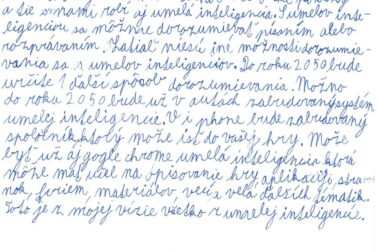 a tie s nami robí aj umelá inteligencia. S umelov inte-
ligenciou sa môžme dorozumievať písaním alebo
rozprávaním. Zatiaľ niesú iné možnosti dorozumie-
vania sa s umelov inteligenciov. Do roku 2050 bude
určite 1 ďalší spôsob dorozumievania. Možno
do roku 2050 bude už v autách zabudovaný systém
umelej inteligence. V i phone bude zabudovaný
spoločník, ktorý može ísť do vašej hry. Može
byť už aj gogle chrome umelá inteligencia ktorá
môže mať účel na opisovanie hry, aplikacií, strá-
nok, lociem, materiálov, vecí a veľa ďalších tímatik.
Toto je z mojej vízie všetko z umelej inteligencie.